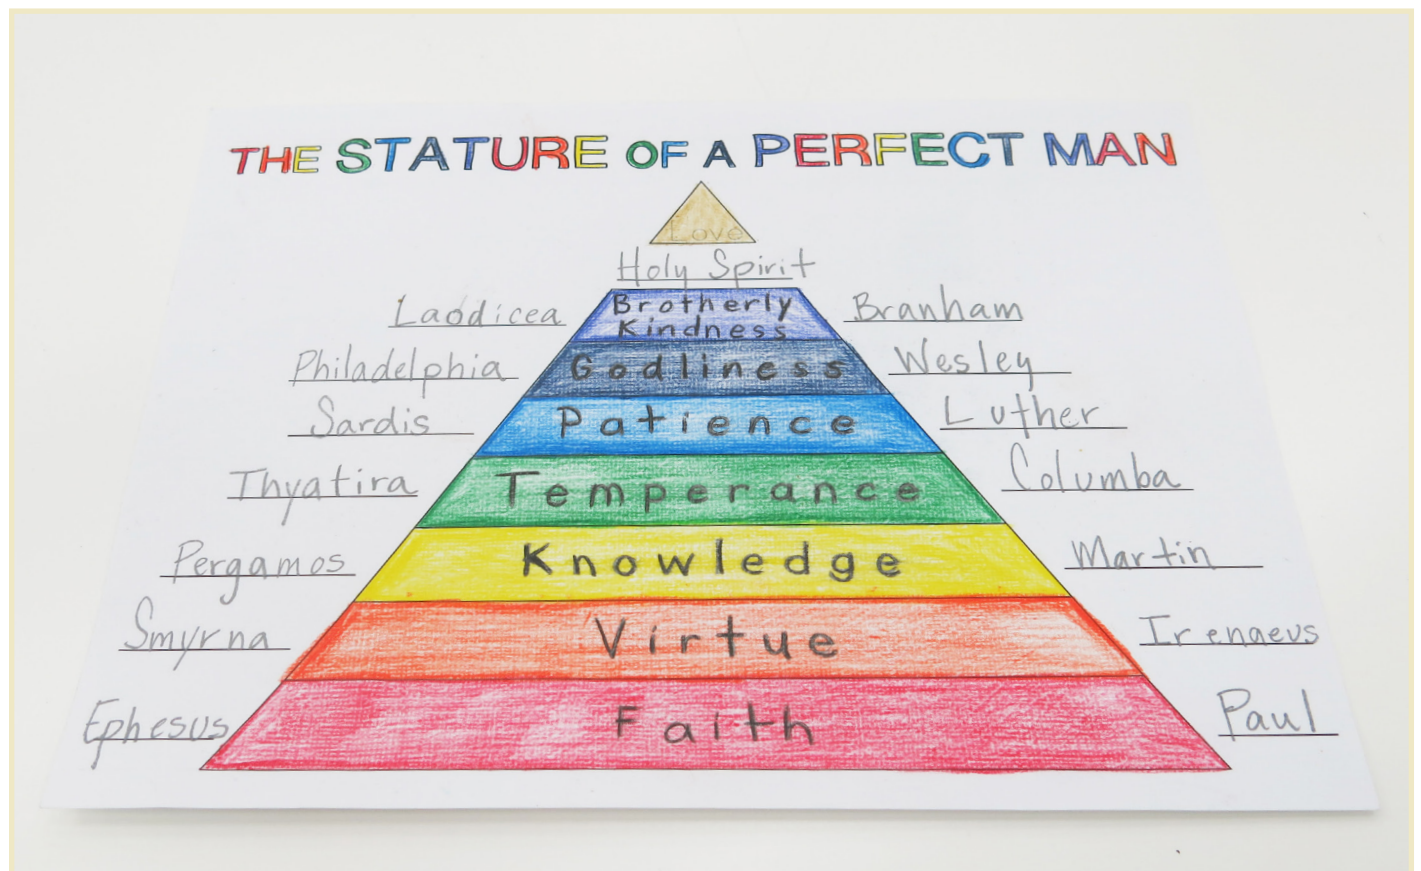 THE STATURE OF A PERFECT MAN
Love
Holy Spirit
Laodicea Brotherly Kindness Branham
Philadelphia Godliness Wesley
Sardis Patience Luther
Thyatira Temperance Columba
Pergamos Knowledge Martin
Smyrna Virtue Irenaeus
Ephesus Faith Paul